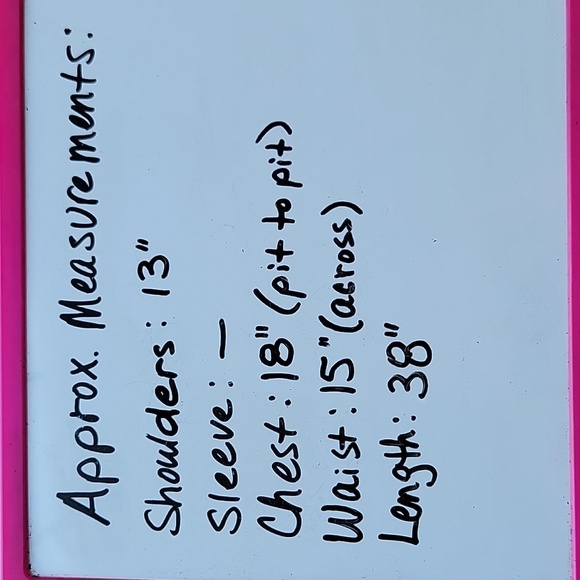 Approx. Measurements:
Shoulders: 13"
Sleeve: —
Chest: 18" (pit to pit)
Waist: 15" (across)
Length: 38"